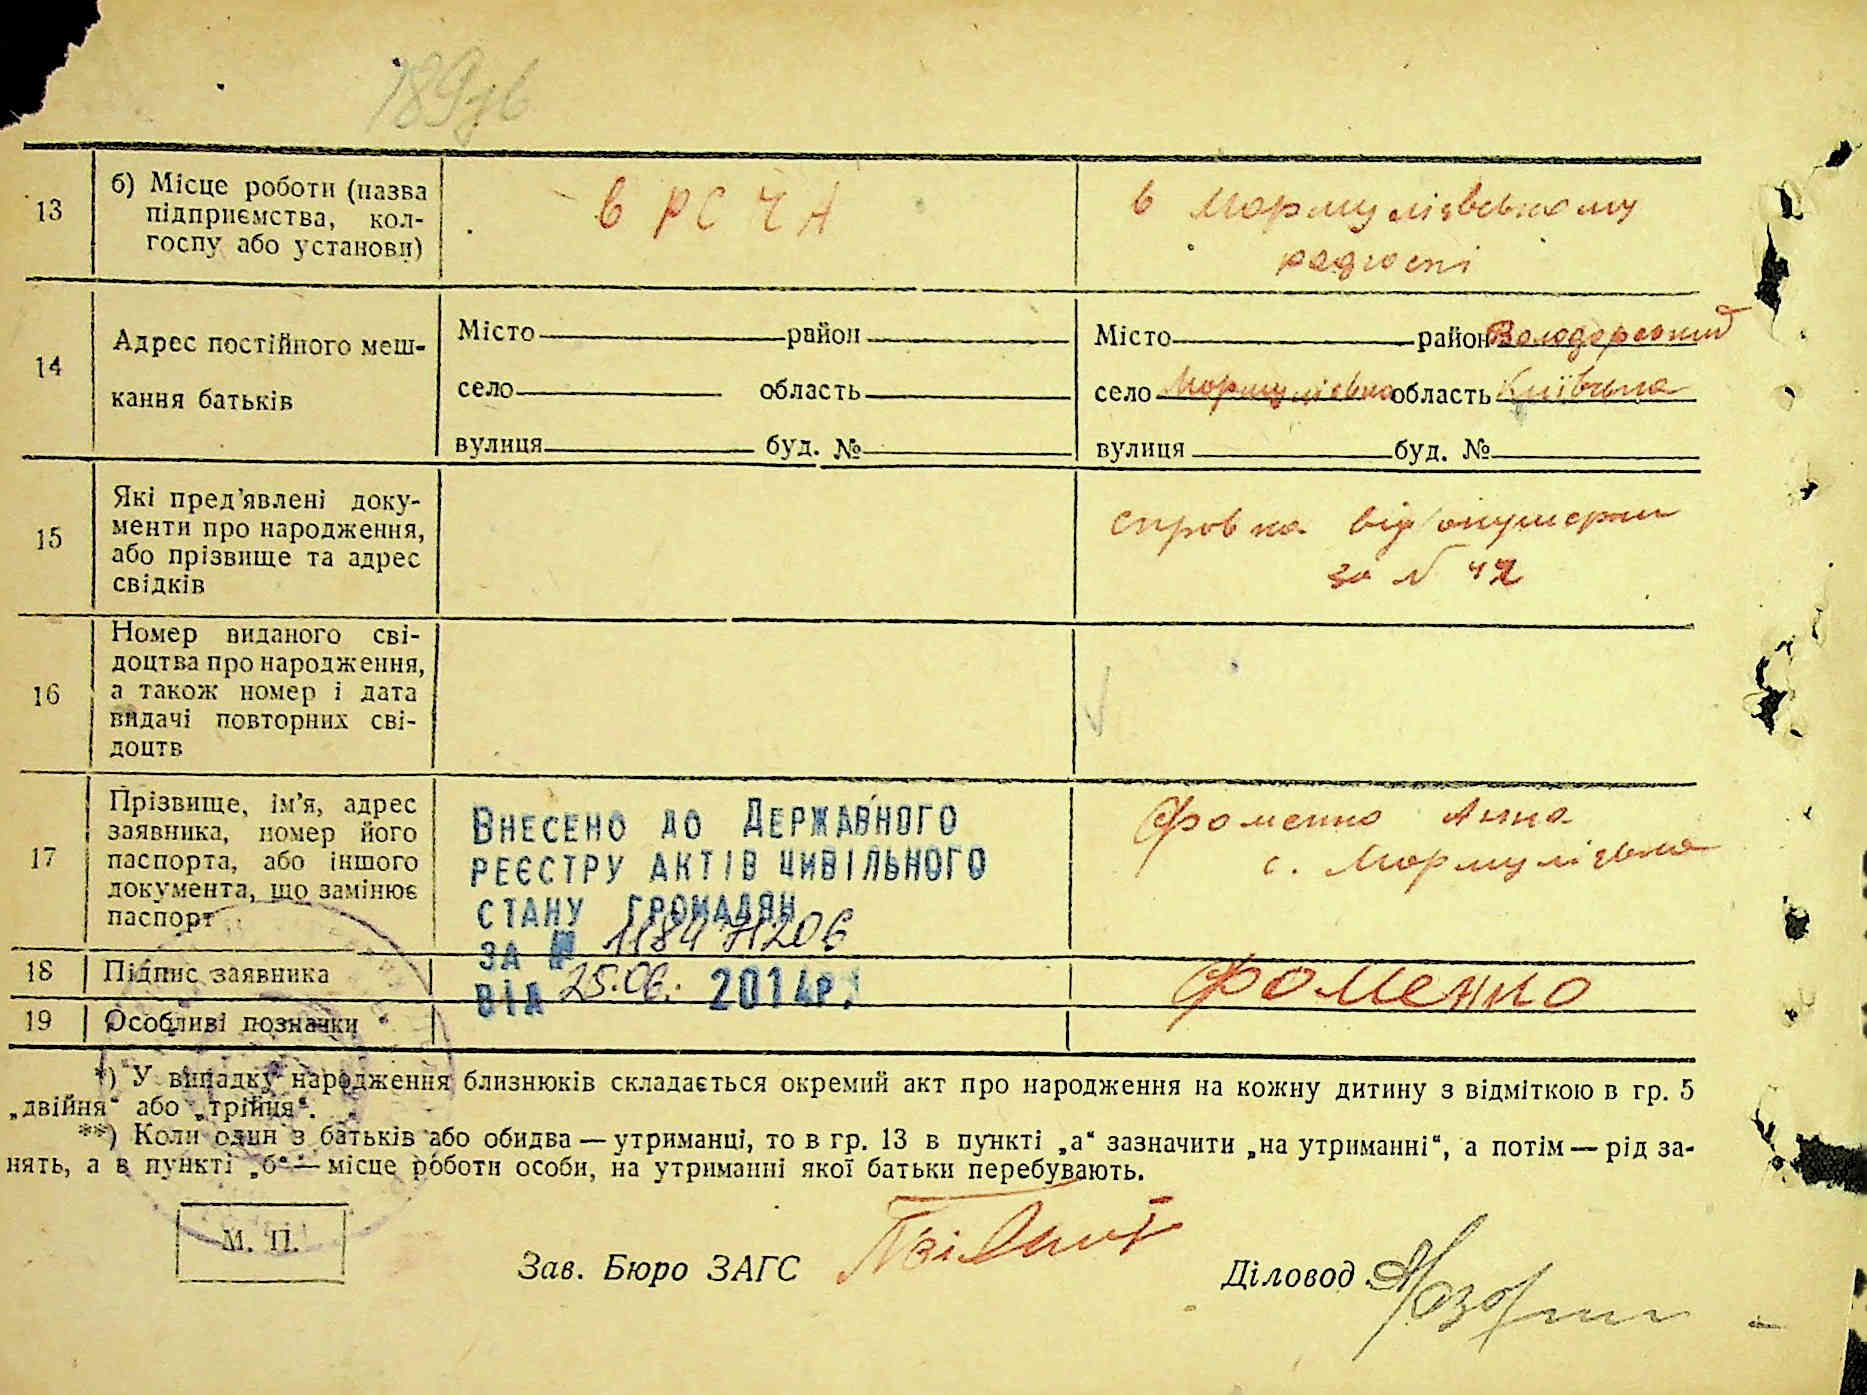 13
б) Місце роботи (назва
підприємства, кол-
госпу або установи)
в РСЧА
в Мормулівському
радгоспі
14
Адрес постійного меш-
кання батьків
Місто район
село область
вулиця буд. №
Місто район Володарський
село Мормуліївка область Київська
вулиця буд. №
15
Які пред'явлені доку-
менти про народження,
або прізвище та адрес
свідків
справка від акушерки
за N 42
16
Номер виданого сві-
доцтва про народження,
а також номер і дата
видачі повторних сві-
доцтв
17
Прізвище, ім'я, адрес
заявника, номер його
паспорта, або іншого
документа, що замінює
паспорт
Внесено до Державного
реєстру актів цивільного
стану громадян
за № 118471206
від 25.06. 2014р.
Фоменко Анна
с. Мормуліївка
18
Підпис заявника
Фоменко
19
Особливі позначки
*) У випадку народження близнюків складається окремий акт про народження на кожну дитину з відміткою в гр. 5
„двійня“ або „трійня“.
**) Коли один з батьків або обидва — утриманці, то в гр. 13 в пункті „а“ зазначити „на утриманні“, а потім — рід за-
нять, а в пункті „б“ — місце роботи особи, на утриманні якої батьки перебувають.
М. П.
Зав. Бюро ЗАГС
Діловод